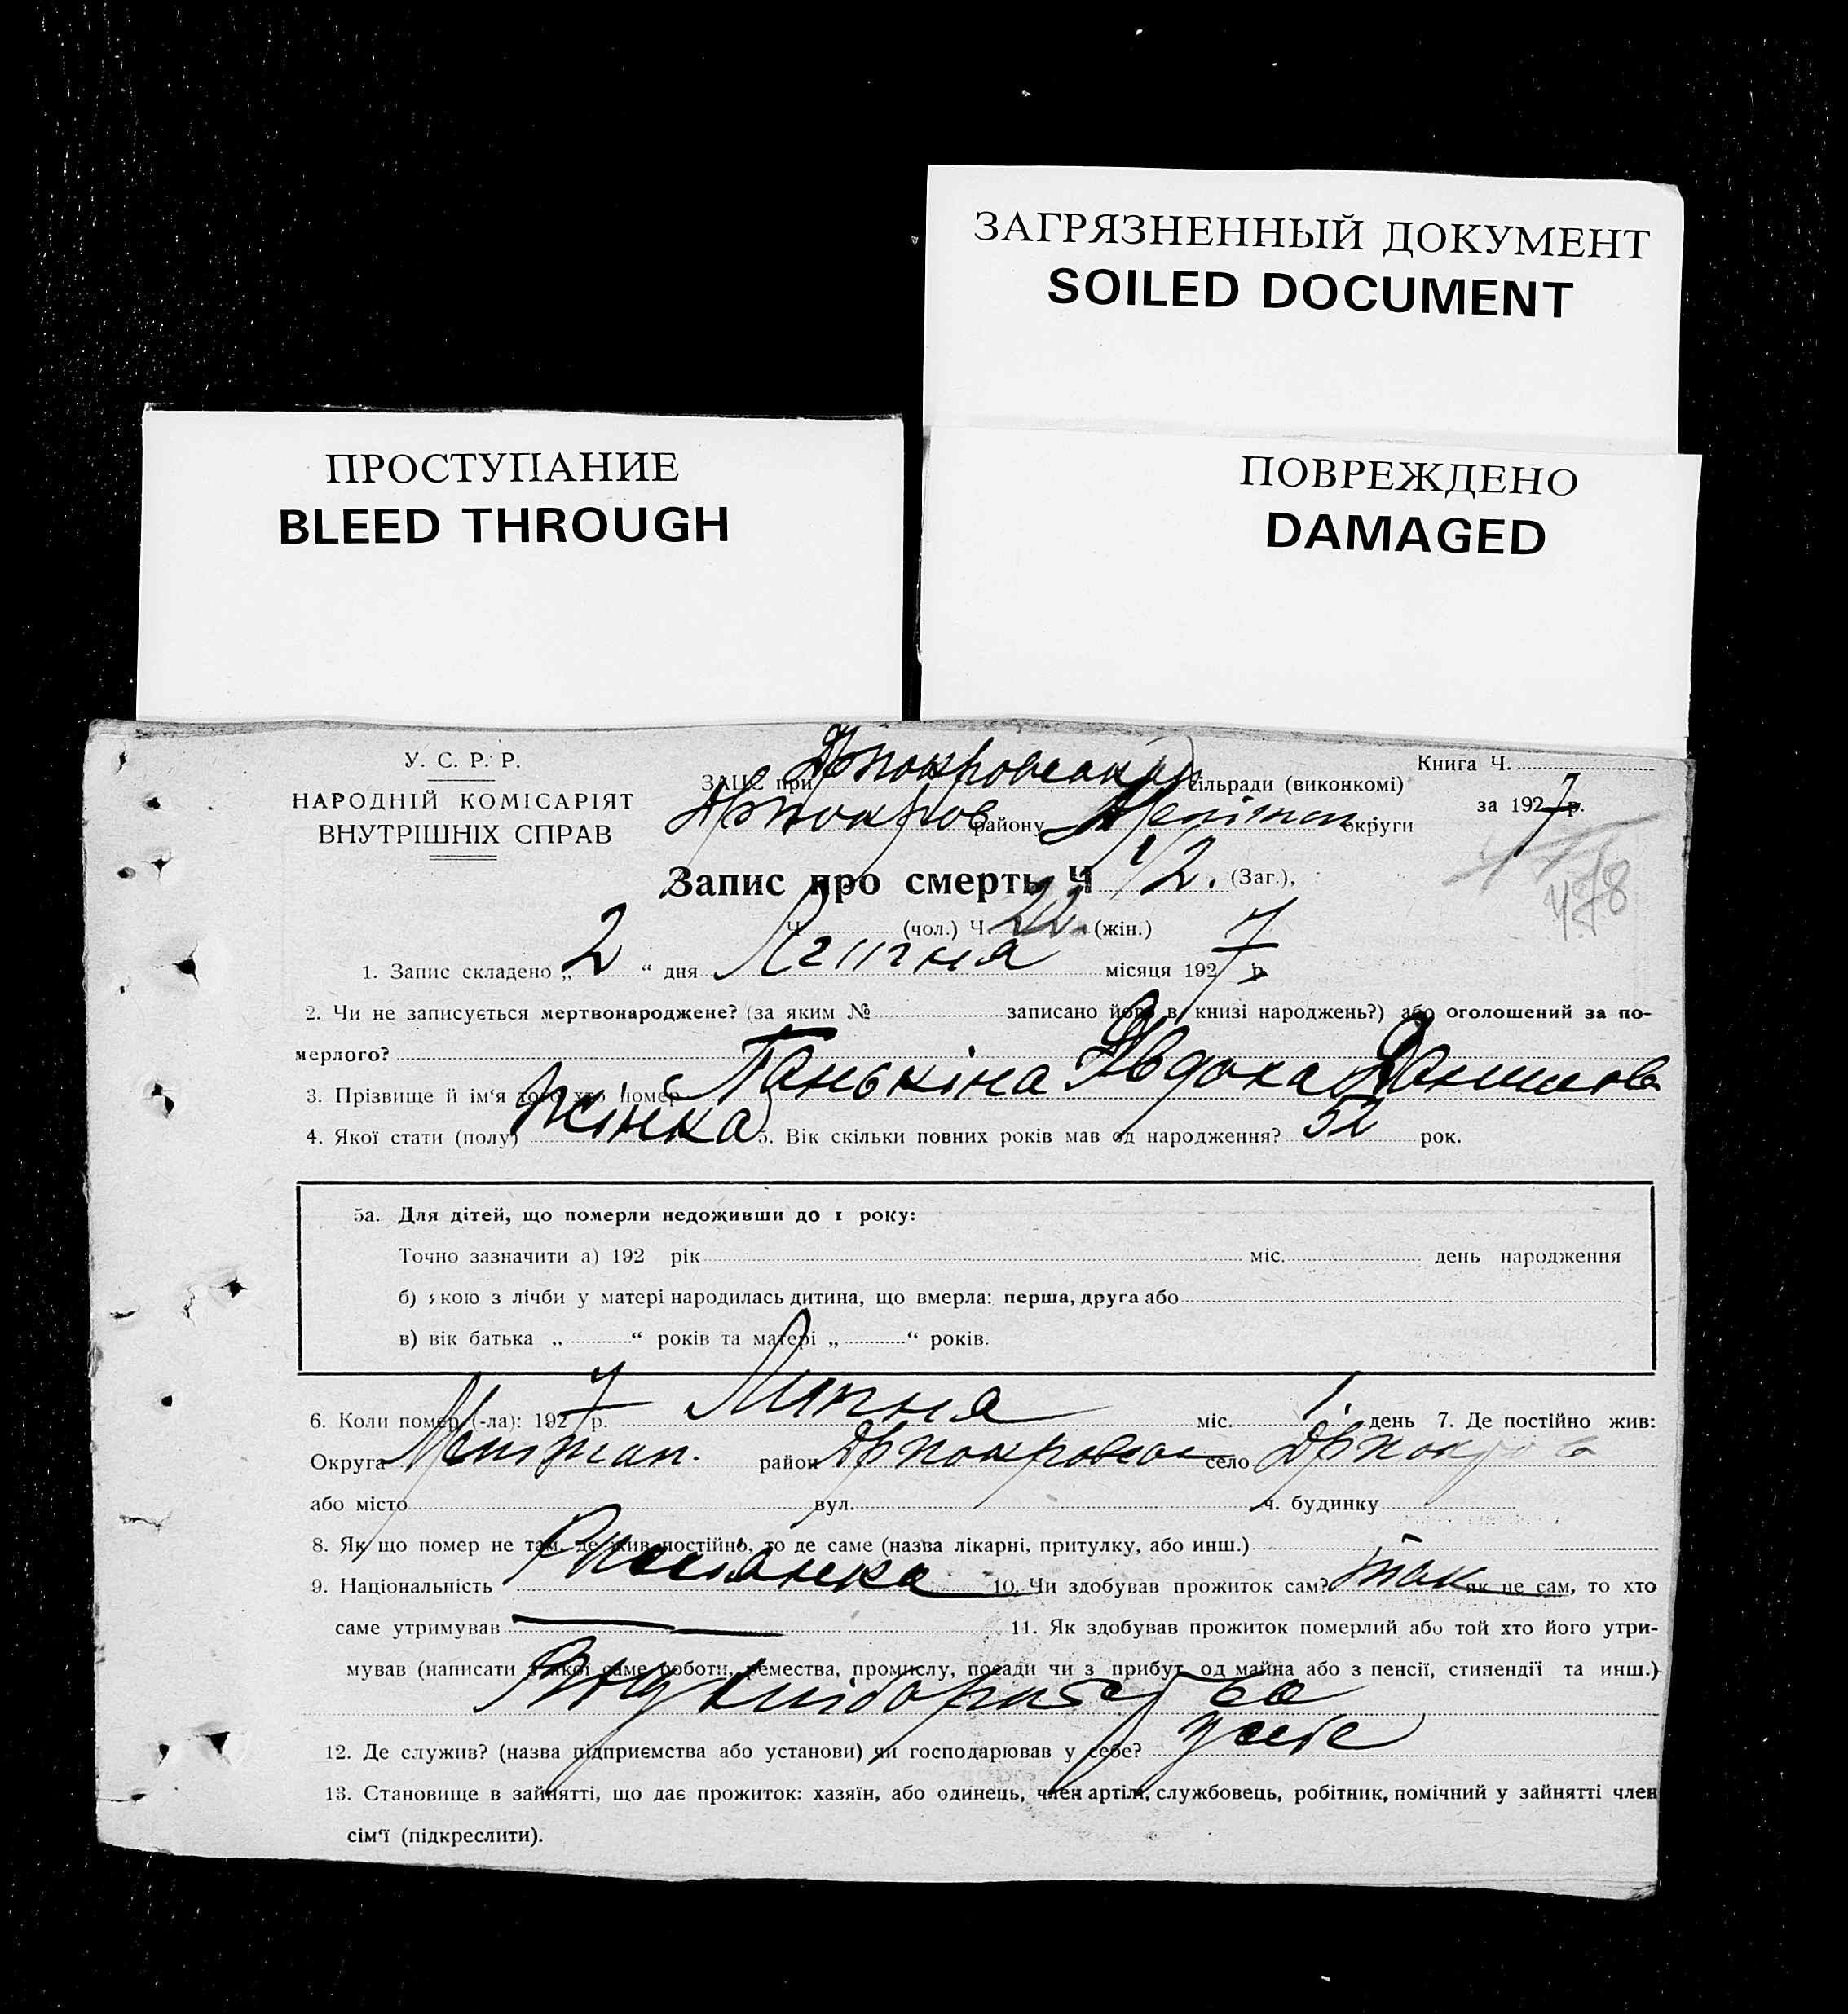 ЗАГРЯЗНЕННЫЙ ДОКУМЕНТ
SOILED DOCUMENT
ПРОСТУПАНИЕ
BLEED THROUGH
ПОВРЕЖДЕНО
DAMAGED
У. С. Р. Р.
НАРОДНІЙ КОМІСАРІЯТ
ВНУТРІШНІХ СПРАВ
Книга Ч.
ЗАЦС при сільради (виконкомі)
за 1927 р.
району округи
478
Запис про смерть Ч 42. (Заг.),
Ч (чол.) Ч 22. (жін.)
1. Запис складено „ 2 “ дня Липня місяця 1927 р.
2. Чи не записується мертвонароджене? (за яким № записано його в книзі народжень?) або оголошений за по-
мерлого?
3. Прізвище й ім'я того хто помер Панькіна Явдоха Данилова
4. Якої стати (полу) Жінка 5. Вік скільки повних років мав од народження? 52 рок.
5а. Для дітей, що померли недоживши до 1 року:
Точно зазначити а) 192 рік міс. день народження
б) якою з лічби у матері народилась дитина, що вмерла: перша, друга або
в) вік батька „ “ років та матері „ “ років.
6. Коли помер (-ла): 1927 р. Липня міс. 1. день 7. Де постійно жив:
Округа Мелітоп. район село
або місто вул. ч. будинку
8. Як що помер не там, де жив постійно, то де саме (назва лікарні, притулку, або инш.)
9. Національність 10. Чи здобував прожиток сам? так як не сам, то хто
саме утримував 11. Як здобував прожиток померлий або той хто його утри-
мував (написати з якої саме роботи, ремества, промислу, посади чи з прибут. од майна або з пенсії, стипендії та инш.)
12. Де служив? (назва підприємства або установи) чи господарював у себе? у себе
13. Становище в зайнятті, що дає прожиток: хазяїн, або одинець, член артілі, службовець, робітник, помічний у зайнятті член
сім'ї (підкреслити).